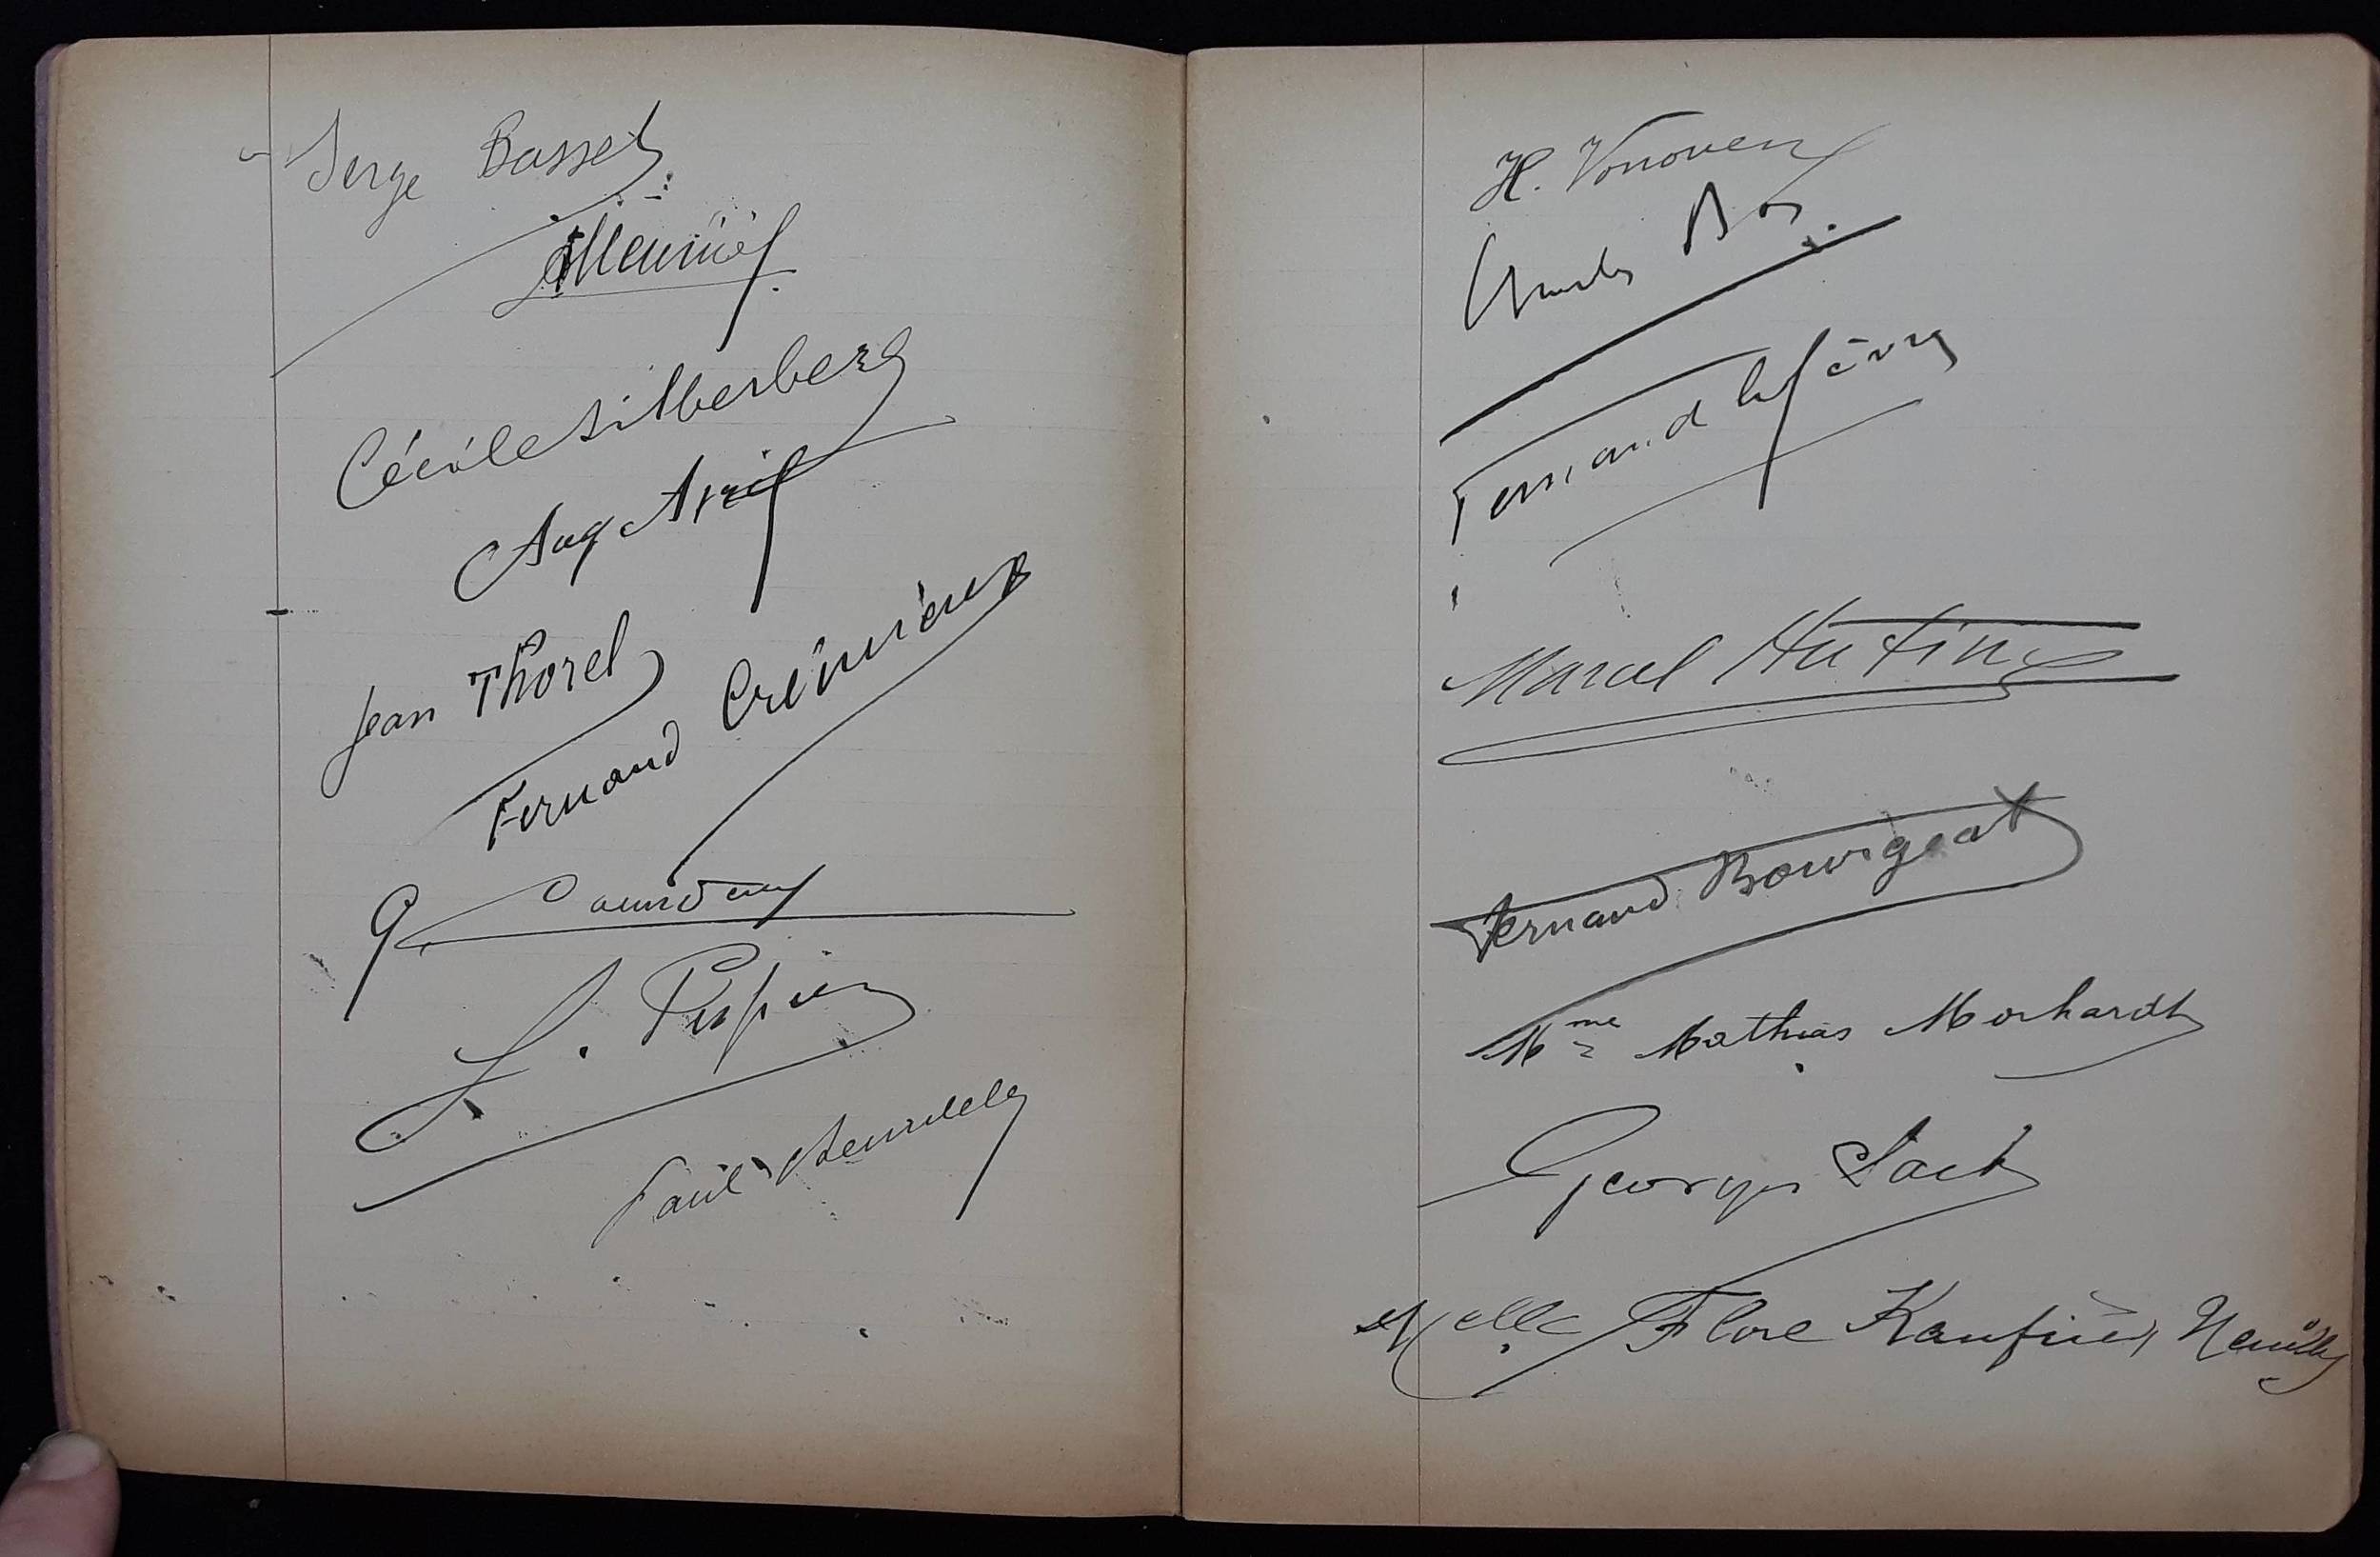 Serge Basset
Meunier
Cécile Silberberg
Aug Avril
Jean Thorel
Fernand Crémieux
G
L. Puspier
Paul
H. Vonoven
Charles Bos.
Fernand Lefèvre
Marcel Hutin
Fernand Bourgeat
Mme Mathias Morhardt
Georges Sack
Melle Flore Neuilly